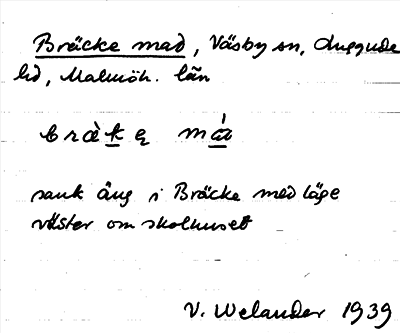 Bräcke mad, Väsby sn, Luggude
hd, Malmöh. län
bràkę má
sank äng i Bräcke med läge
väster om skolhuset
V. Welander 1939